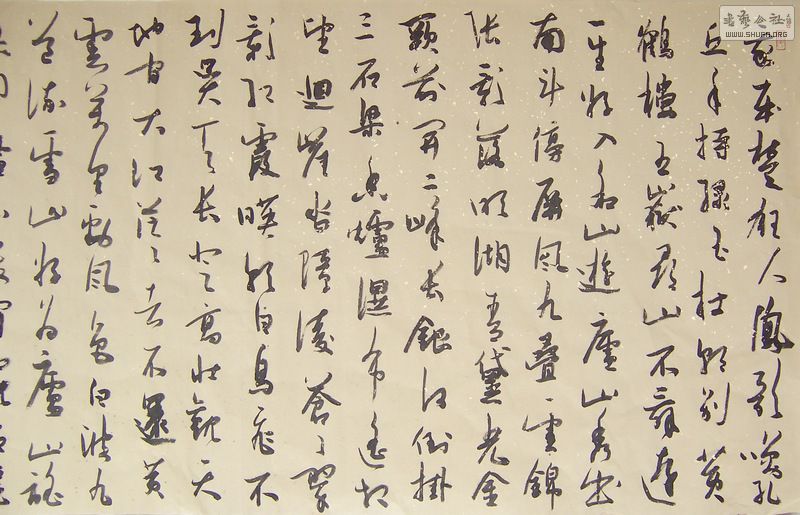 我本楚狂人鳳歌笑孔
丘手持綠玉杖朝別黄
鶴樓五嶽尋山不辭遠
一生好入名山遊廬山秀出
南斗傍屏風九疊雲錦
張影落明湖青黛光金
闕前開二峰長銀河倒掛
三石梁香爐瀑布遙相
望迴崖沓障凌蒼蒼翠
影紅霞映朝日鳥飛不
到吳天長登高壯觀天
地間大江茫茫去不還黄
雲萬里動風色白波九
道流雪山好為廬山謠
书艺公社
WWW.SHUFA.ORG